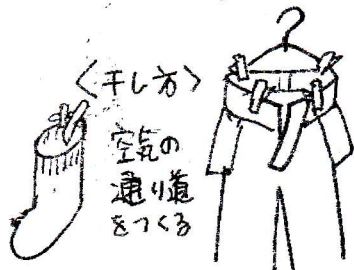 〈干し方〉
空気の
通り道
をつくる